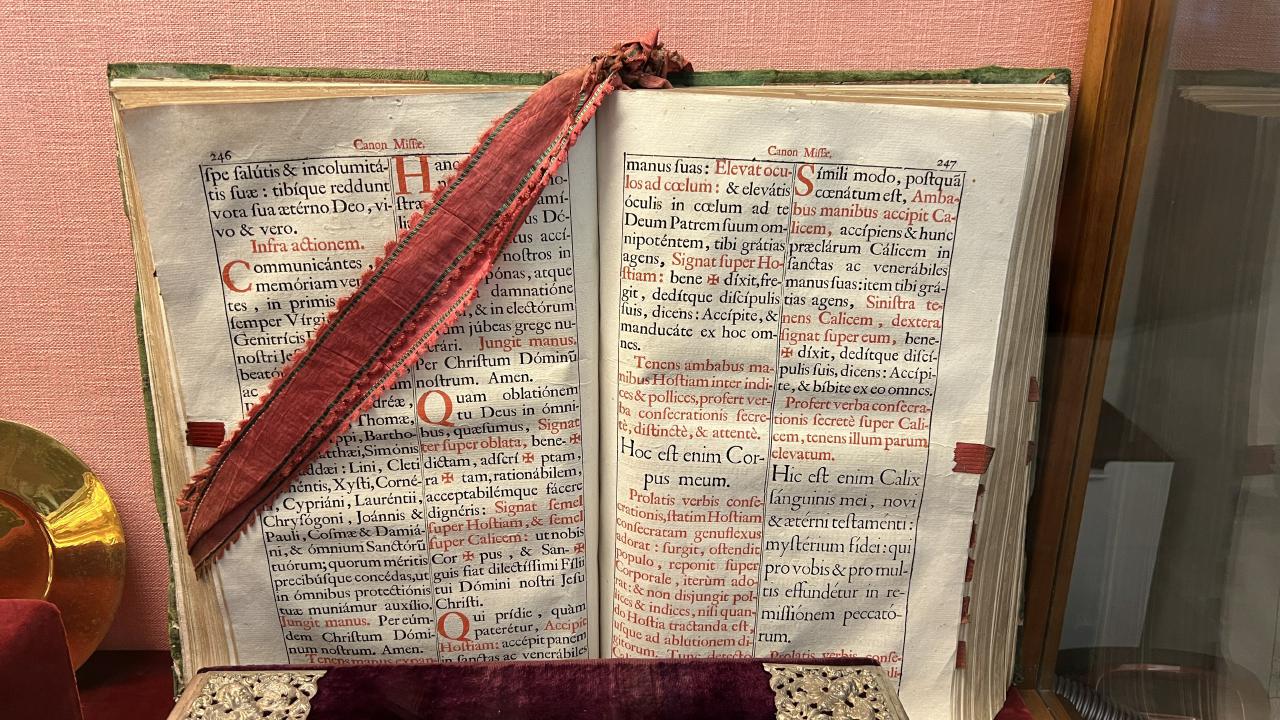 246
Canon Missæ.
spe salútis & incolumitá-
tis suæ : tibíque reddunt
vota sua ætérno Deo, vi-
vo & vero.
Infra actionem.
Communicántes
memóriam
tes , in primis
semper
Genitrícis
nostri
beató
ac
dréæ ,
Thomæ,
ppi, Bartho-
tthæi, Simonis
ddæi : Lini, Cleti
méntis, Xysti, Corné-
, Cypriáni, Lauréntii,
Chrysógoni, Joánnis &
Pauli, Cosmæ & Damiá-
ni, & ómnium Sanctórũ
tuórum; quorum méritis
precibúsque concédas,ut
in ómnibus protectiónis
tuæ muniámur auxílio.
Jungit manus. Per eúm-
dem Christum Dómi-
num nostrum. Amen.
Tenens manus expan
Hanc
stra
mí-
us Dó-
tus accí-
nostros in
pónas, atque
damnatióne
, & in electórum
m júbeas grege nu-
erári. Jungit manus.
Per Christum Dóminũ
nostrum. Amen.
Quam oblatiónem
tu Deus in ómni-
bus, quæsumus, Signat
ter super oblata, bene-✠
díctam, adscrí ✠ ptam,
ra ✠ tam, rationábilem,
acceptabilémque fácere
dignéris: Signat semel
super Hostiam, & semel
super Calicem: ut nobis
Cor ✠ pus , & San-✠
guis fiat dilectíssimi Fílii
tui Dómini nostri Jesu
Christi.
Qui prídie , quàm
paterétur, Accipit
Hostiam: accépit panem
in sanctas ac venerábiles
Canon Missæ.
247
manus suas: Elevat ocu-
los ad cœlum: & elevátis
óculis in cœlum ad te
Deum Patrem suum om-
nipoténtem, tibi grátias
agens, Signat super Ho-
stiam: bene ✠ díxit,fre-
git, dedítque discípulis
suis, dicens: Accípite, &
manducáte ex hoc om-
nes.
Tenens ambabus ma-
nibus Hostiam inter indi-
ces & pollices,profert ver-
ba consecrationis secre-
tè, distinctè, & attentè.
Hoc est enim Cor-
pus meum.
Prolatis verbis conse-
crationis,statim Hostiam
consecratam genuflexus
adorat : surgit, ostendit
populo , reponit super
Corporale, iterùm ado-
rat: & non disjungit pol-
lices & indices, nisi quan-
do Hostia tractanda est,
usque ad ablutionem di-
gitorum. Tunc detecto
Símili modo, postquã
cœnátum est, Amba-
bus manibus accipit Ca-
licem, accípiens & hunc
præclárum Cálicem in
sanctas ac venerábiles
manus suas: item tibi grá-
tias agens, Sinistra te-
nens Calicem , dextera
signat super eum, bene-
✠ díxit, dedítque discí-
pulis suis, dicens: Accípi-
te, & bíbite ex eo omnes.
Profert verba consecra-
tionis secretè super Cali-
cem, tenens illum parum
elevatum.
Hic est enim Calix
sánguinis mei , novi
& ætérni testamenti :
mystérium fídei: qui
pro vobis & pro mul-
tis effundétur in re-
missiónem peccató-
rum.
Prolatis verbis conse-